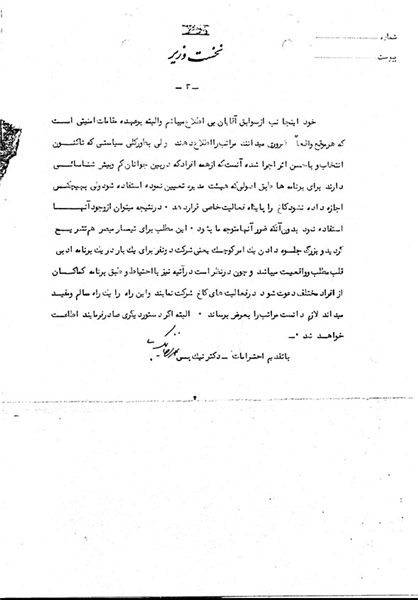 شماره
پیوست
نخست وزیر
- ۲ -
خود اینجانب از سوابق آقایان بی اطلاع میباشم والبته برعهده مقامات امنیتی است
که هرموقع واقعاً ضروری میدانند مراتب را اطلاع دهند ولی بطورکلی سیاستی که تاکنون
انتخاب و باحسن اثر اجرا شده آنست که از همه افراد که در بین جوانان کم و بیش شناسائی
دارند برای برنامه ها طبق اصولی که هیئت مدیره تعیین نموده استفاده شود ولی بهیچکس
اجازه داده نشود کاخ را پایگاه فعالیت خاصی قرار دهد در نتیجه میتوان از وجود آنها
استفاده نمود بدون آنکه ضرر آنها متوجه ما بشود این مطلب برای تیمسار مبصر هم تشریح
گردید و بزرگ جلوه دادن یک امر کوچک یعنی شرکت دو نفر برای یک بار در یک برنامه ادبی
قلب مطلب و واقعیت میباشد و چون در نظر است در آتیه نیز با احتیاط و طبق برنامه کماکان
از افراد مختلف دعوت شود در فعالیت های کاخ شرکت نمایند و این راه را یک راه سالم و مفید
میداند لازم دانست مراتب را بعرض برساند البته اگر دستور دیگری صادر فرمایند اطاعت
خواهد شد
با تقدیم احترامات - دکتر